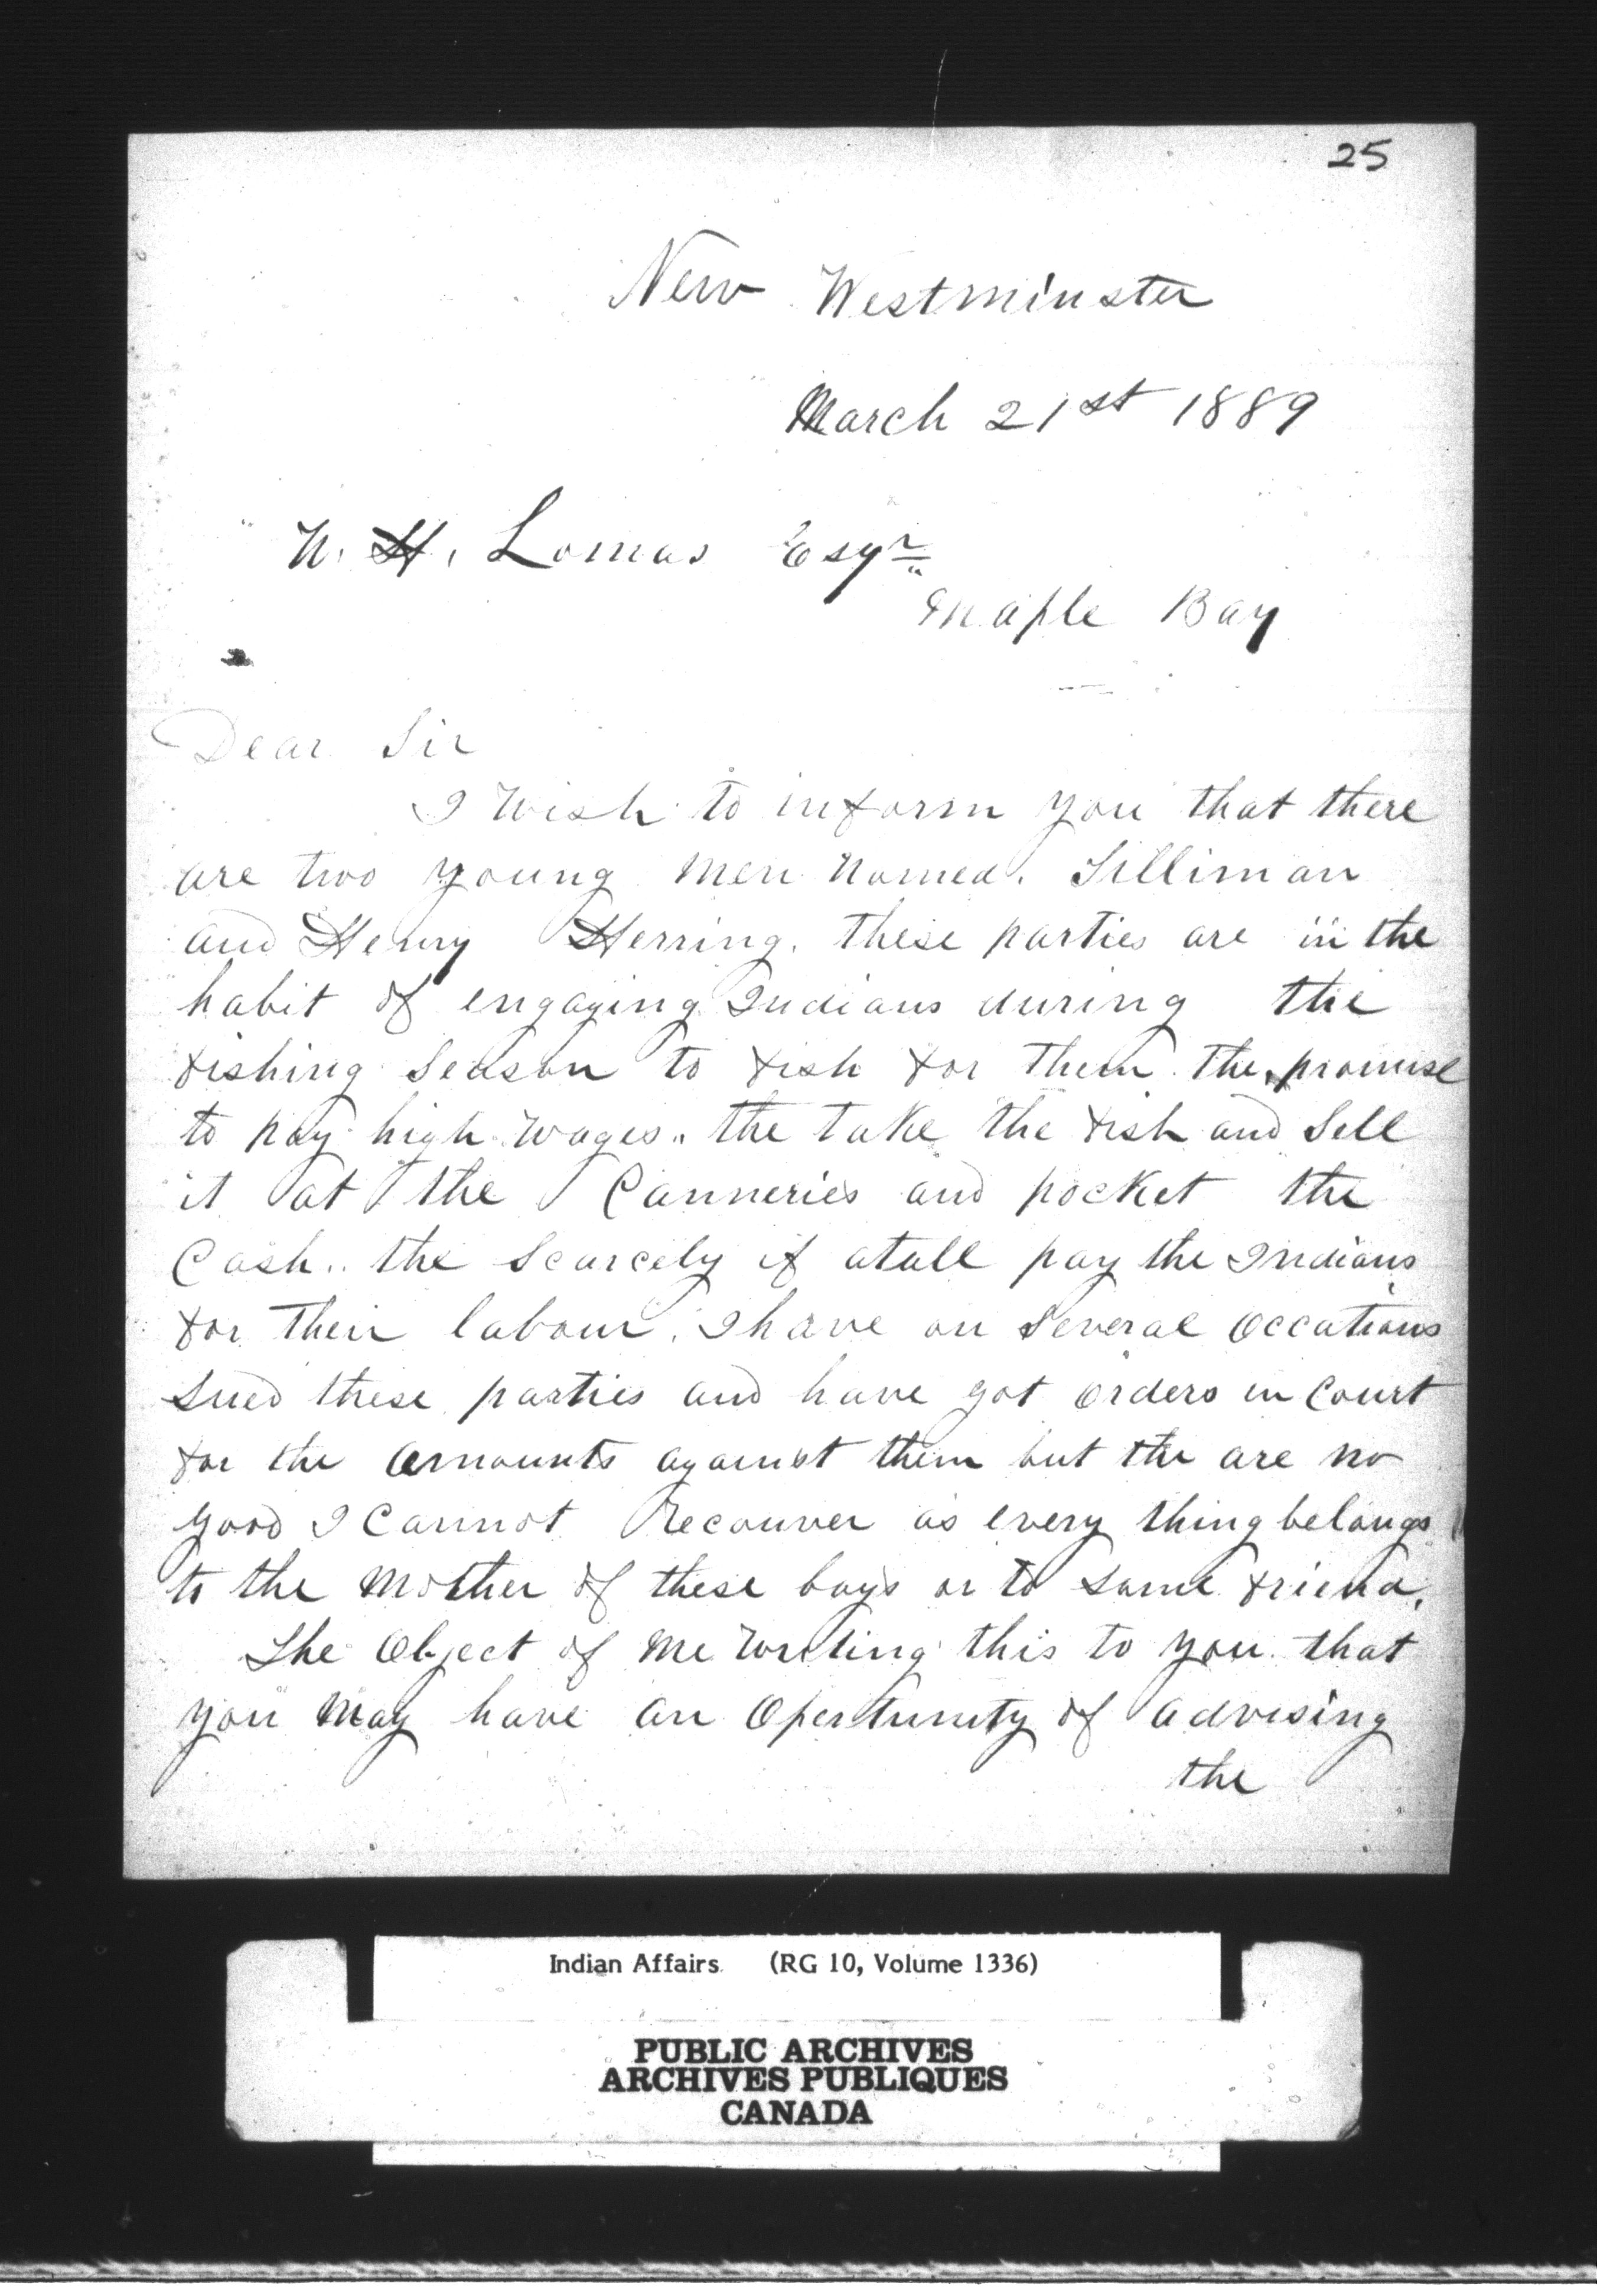 25
New Westminster
March 21st 1889
W. H. Lomas Esqr
Maple Bay
Dear Sir
I Wish to inform you that there
are two young men named. Silliman
and Henry Herring. these parties are in the
habit of engaging Indians during the
fishing Season to fish for them. the promise
to pay high wages. the take the fish and Sell
it at the Canneries and pocket the
Cash.. the Scarcely if atall pay the Indians
for their labour. I have on Several Occations
Sued these parties and have got orders in Court
for the amounts against them but the are no
good I Cannot Recouver as every thing belongs
to the Mother of these boys or to some friend.
The Object of me writing this to you that
you may have an Opertunity of advising
the
Indian Affairs. (RG 10, Volume 1336)
PUBLIC ARCHIVES
ARCHIVES PUBLIQUES
CANADA